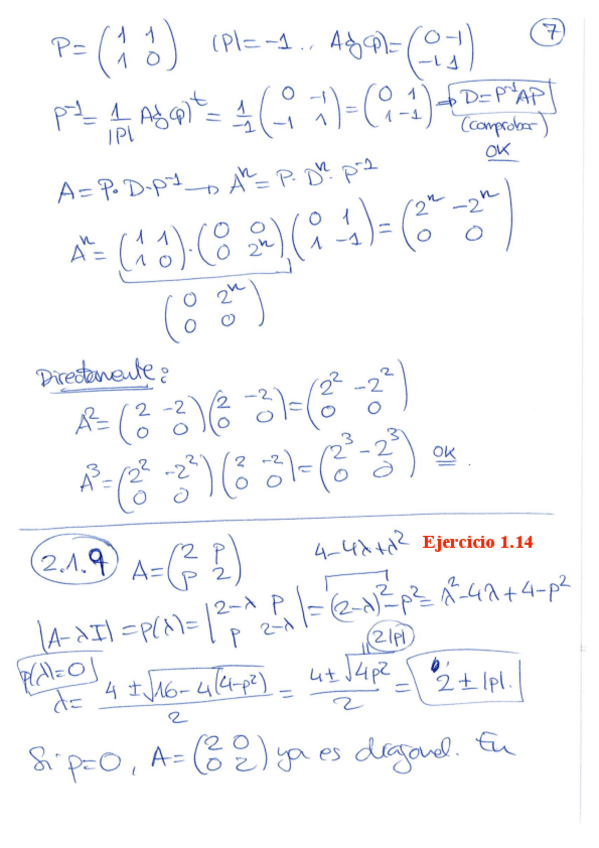 7
P = (1 1; 1 0)   |P| = -1 .. Adj(P) = (0 -1; -1 1)
P⁻¹ = 1/|P| Adj(P)ᵗ = 1/-1 (0 -1; -1 1) = (0 1; 1 -1) → D = P⁻¹AP
(comprobar)
OK
A = P·D·P⁻¹ → Aⁿ = P·Dⁿ·P⁻¹
Aⁿ = (1 1; 1 0)·(0 0; 0 2ⁿ)(0 1; 1 -1) = (2ⁿ -2ⁿ; 0 0)
(0 2ⁿ; 0 0)
Directamente:
A² = (2 -2; 0 0)(2 -2; 0 0) = (2² -2²; 0 0)
A³ = (2² -2²; 0 0)(2 -2; 0 0) = (2³ -2³; 0 0) OK.
2.1.9 A = (2 p; p 2)   4-4λ+λ² Ejercicio 1.14
|A-λI| = p(λ) = |2-λ p; p 2-λ| = (2-λ)² - p² = λ²-4λ+4-p²
p(λ)=0   2|p|
λ = (4 ± √(16-4(4-p²)))/2 = (4 ± √(4p²))/2 = 2 ± |p|.
Si p=0, A = (2 0; 0 2) ya es diagonal. En